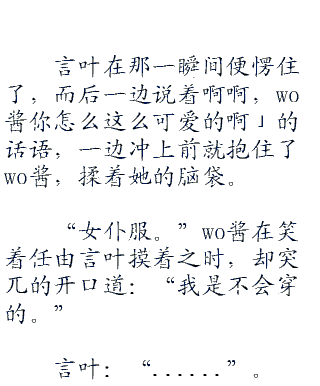 言叶在那一瞬间便愣住
了，而后一边说着啊啊，wo
酱你怎么这么可爱的啊」的
话语，一边冲上前就抱住了
wo酱，揉着她的脑袋。
“女仆服。”wo酱在笑
着任由言叶摸着之时，却突
兀的开口道：“我是不会穿
的。”
言叶：“......”。